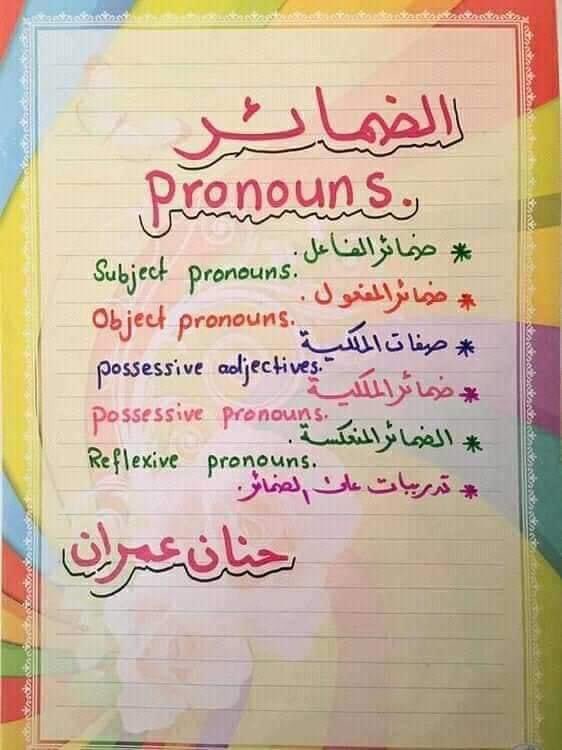 الضمائر
Pronouns.
* ضمائر الفاعل.
Subject pronouns.
* ضمائر المفعول.
Object pronouns.
* صفات الملكية
possessive adjectives.
* ضمائر الملكية
possessive pronouns.
* الضمائر المنعكسة.
Reflexive pronouns.
* تدريبات على الضمائر.
حنان عمران